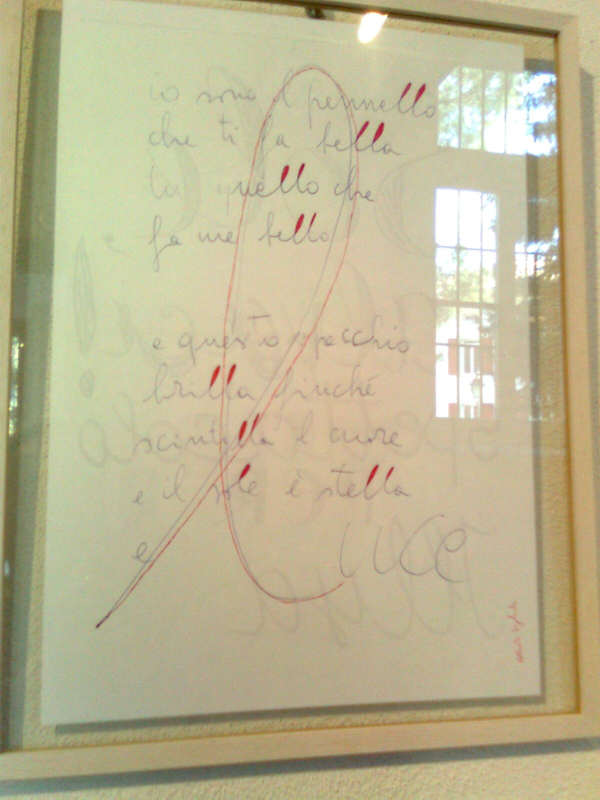 io sono 'l pennello
che ti fa bella
tu quello che
fa me bello
e questo specchio
brilla finché
scintilla 'l cuore
e il sole è stella
e luce